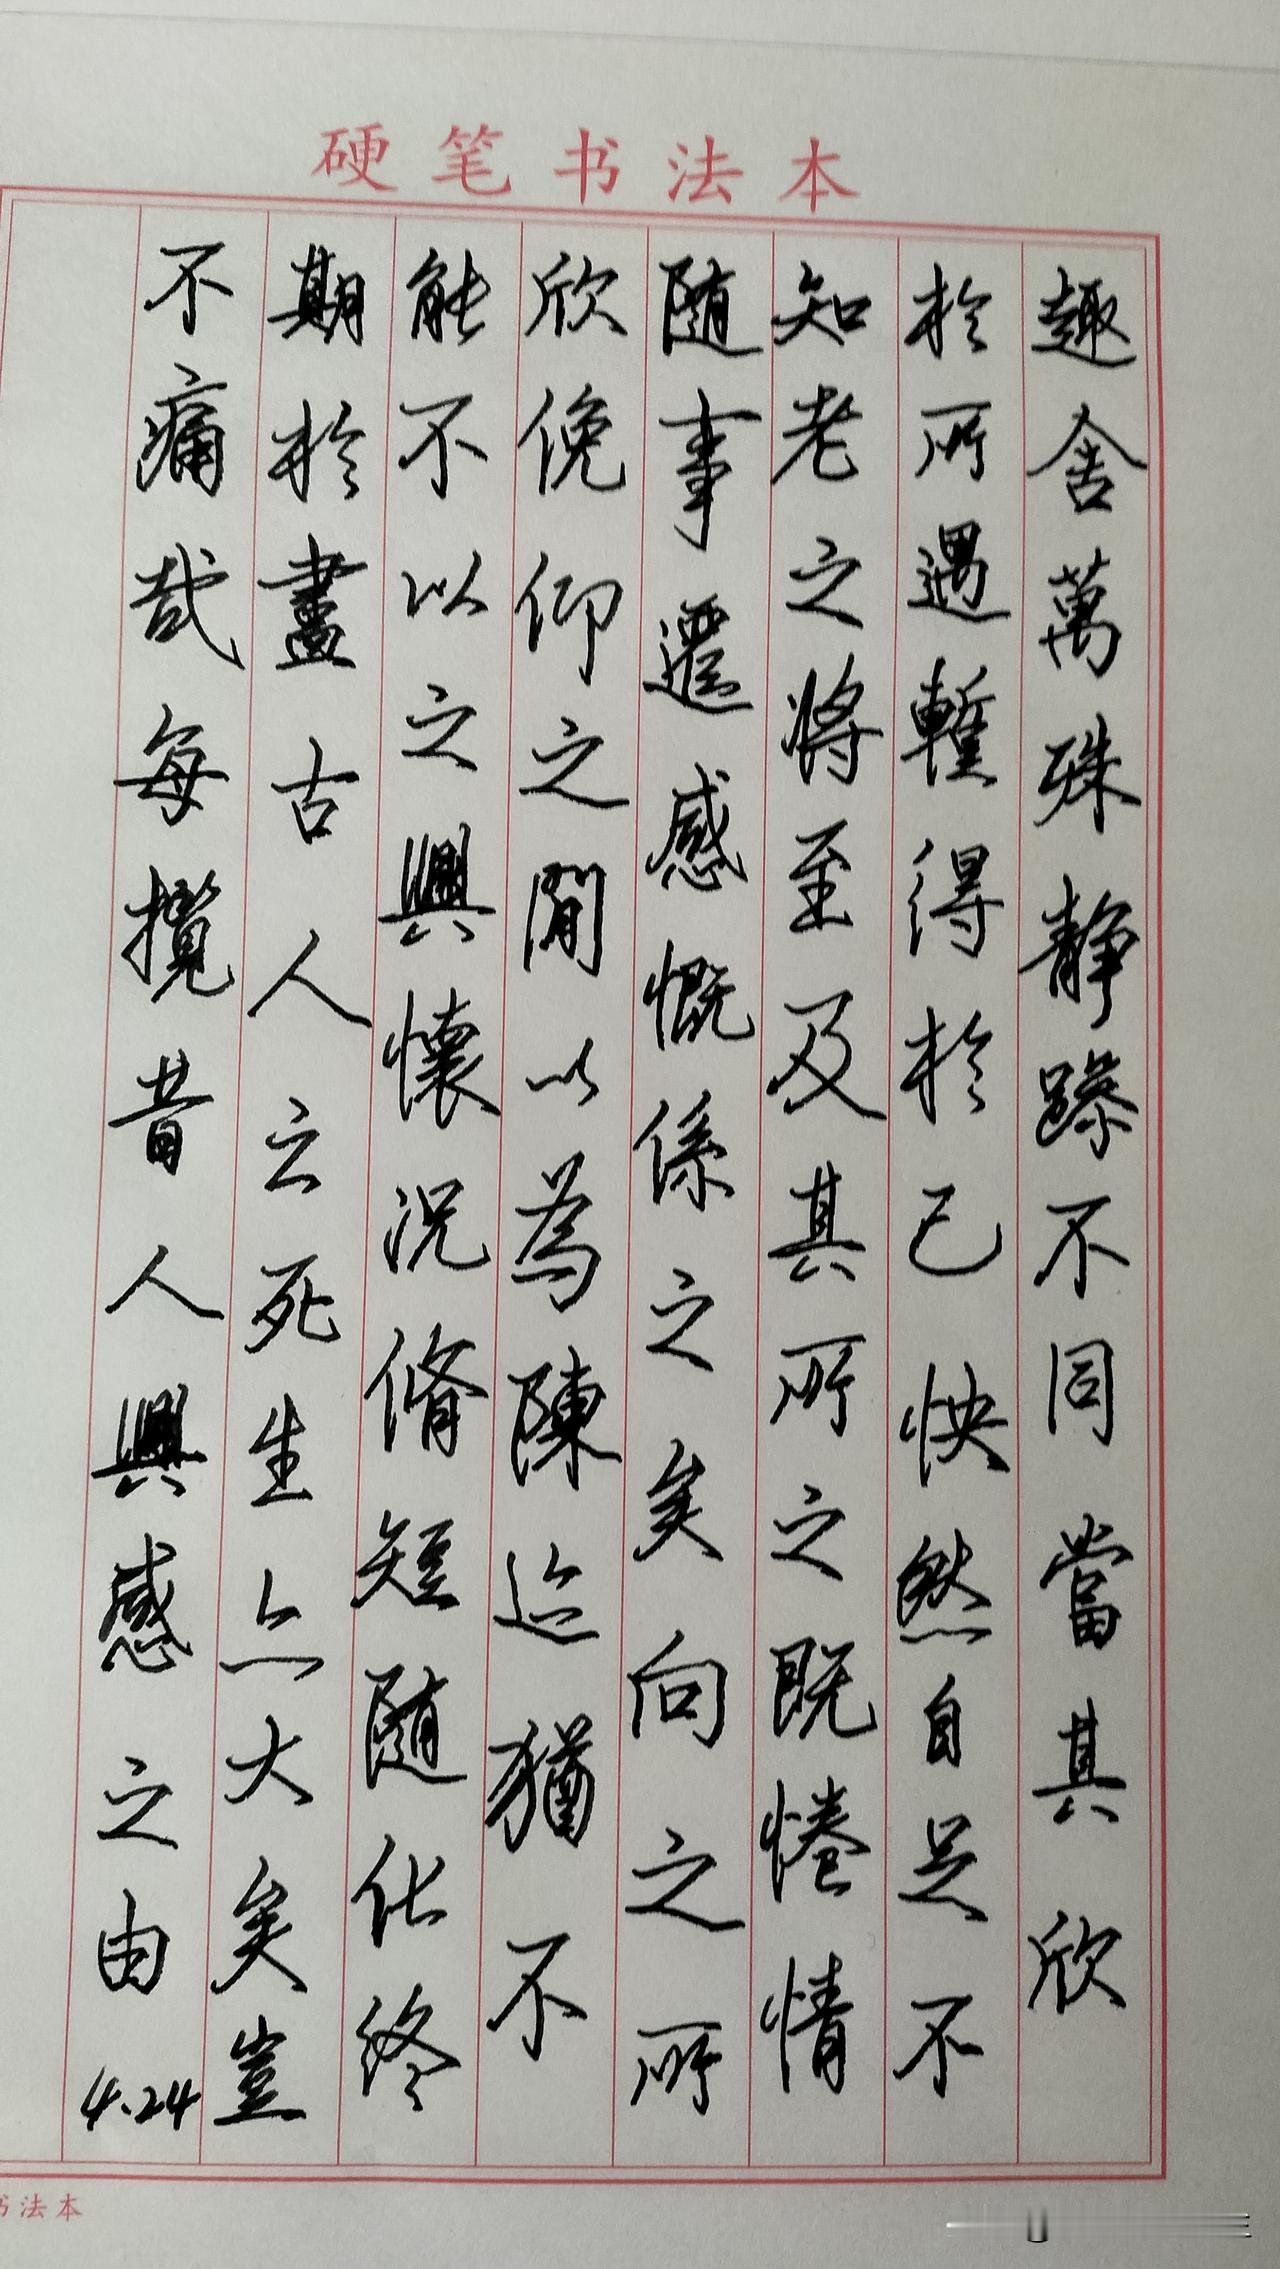 硬笔书法本
趣舍萬殊静躁不同當其欣
於所遇暫得於己怏然自足不
知老之将至及其所之既惓情
随事遷感慨係之矣向之所
欣俛仰之閒以為陳迹猶不
能不以之興懷況脩短随化終
期於盡古人云死生亦大矣豈
不痛哉每攬昔人興感之由
4.24
书法本